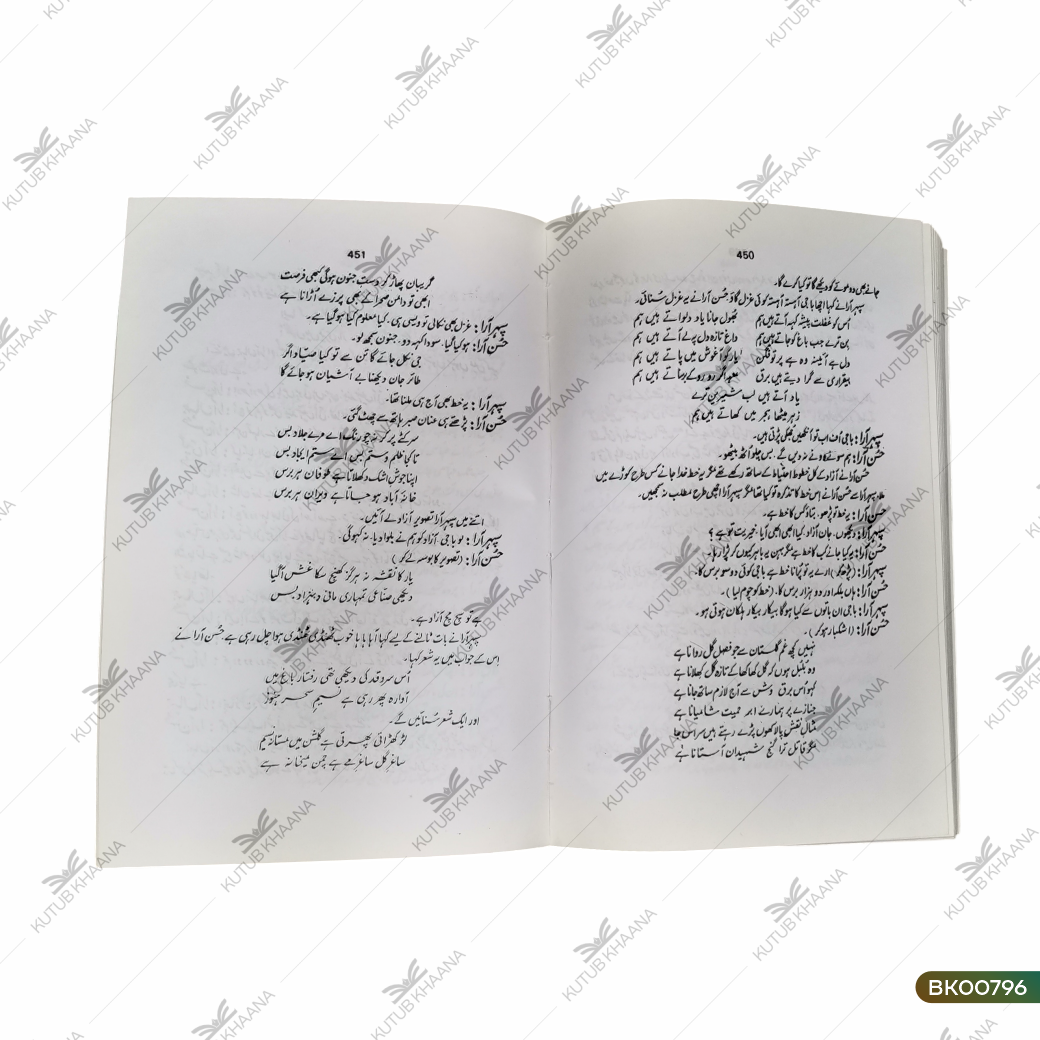 450
جانے بھی دو ہوئے کو دیکھے گا تو کیا کرے گا۔
سپہر آرا نے کہا اچھا باجی آہستہ آہستہ کوئی غزل گاؤ۔ حُسن آرا نے یہ غزل سُنائی۔
اُس کو غفلت پیشہ کہہ آتے ہیں ہم بھول جانا یاد دلواتے ہیں ہم
بن ترے جب باغ کو جاتے ہیں ہم داغ تازہ دل پر لے آتے ہیں ہم
دل ہے آئینہ وہ ہے پرتو فگن یار کو آغوش میں پاتے ہیں ہم
بیقراری سے گرا دیتے ہیں برق مینہ اگر رو رو کے برساتے ہیں ہم
یاد آتے ہیں لب شیریں ترے
زہر میٹھا ہجر میں کھاتے ہیں ہم
سپہر آرا: باجی اُف اب تو آنکھیں جھکی پڑتی ہیں۔
حُسن آرا: ہم سونے کا دے نہ دیں گے۔ بس چلو اُٹھ بیٹھو۔
حسن آرا نے آزاد کے کل خطوط احتیاط کے ساتھ رکھے تھے مگر یہ خط خدا جانے کس طرح کوڑے میں
ملا۔ سپہر آرا سے حُسن آرا نے اِس خط کا تذکرہ تو کیا تھا مگر سپہر آرا اچھی طرح مطلب نہ سمجھیں۔
حُسن آرا: یہ خط تو پڑھو۔ بتاؤ کس کا خط ہے۔
سپہر آرا: دیکھوں۔ جان آزاد۔ کیا ابھی ابھی آیا۔ خیریت تو ہے ؟
حُسن آرا: یہ کیا جانے کب کا خط ہے مگر بہن یہ باہر کیوں کر پڑا رہا۔
سپہر آرا: (پڑھ کو) ارے یہ تو پُرانا خط ہے باجی کوئی دو سو برس کا۔
حُسن آرا: ہاں بلکہ اور دو ہزار برس کا۔ (خط کو چوم لیا)۔
سپہر آرا: باجی اِن باتوں سے کیا ہو گا بیکار بیکار ہلکان ہوتی ہو۔
حُسن آرا: (اشکبار ہو کر)۔
نہیں کچھ غم گلستان سے جو فصل گل روانا ہے
وہ بُلبل ہوں کہ گل کھا کھا کے تازہ گل کھلانا ہے
لہو اُس برق وَش سے آج لازم ساتھ جانا ہے
جنازے پر ہمارے ابر رحمت شامیانا ہے
مثال نقش پا لاکھوں پڑے رہتے ہیں سر اس جا
مگر قاتل ترا گنج شہیداں آستانا ہے
451
گریبان پھاڑ کر دست جنون ہوگی کبھی فرصت
ابھی تو دامن صحرا کے بھی پرزے اُڑانا ہے
سپہر آرا: غزل بھی نکالی تو ویسی ہی۔ کیا معلوم کیا ہو گیا ہے۔
حُسن آرا: ہو کیا گیا۔ سودا کہہ دو۔ جنون سمجھ لو۔
جی نکل جائے گا تن سے تو کیا صیّاد اگر
طائر جان دیکھنا بے آشیان ہو جائے گا
سپہر آرا: یہ خط بھی آج ہی ملنا تھا۔
حُسن آرا: پڑھتے ہی عنان صبر ہاتھ سے چھٹ گئی۔
سر کٹے پر کرنہ چو رنگ اے مرے جلاد بس
تا کجا ظلم و ستم بس اے ستم ایجاد بس
اپنا جوش اشک دکھلاتا ہے طوفان ہر برس
خانۂ آباد ہو جاتا ہے ویران ہر برس
اتنے میں سپہر آرا تصویر آزاد لے آئیں۔
سپہر آرا: لو باجی آزاد کو ہم نے بلوا دیا۔ نہ کہو گی۔
حُسن آرا: (تصویر کا بوسہ لے کو)
یار کا نقشہ نہ ہرگز کھنچ سکا غش آ گیا
دیکھی صناعی تمہاری مانی و بہزاد بس
ہے تو سچ مچ آزاد ہے۔
سپہر آرا نے بات ٹالنے کے لیے کہا آہا ہا ہا خوب ٹھنڈی ٹھنڈی ہوا چل رہی ہے۔ حُسن آرا نے
اِس کے جواب میں یہ شعر کہا۔
اُس سرو قد کی دیکھی تھی رفتار باغ میں
آوارہ پھر رہی ہے نسیم سحر ہنوز
اور ایک شعر سُنائیں گے۔
لڑکھڑاتی پھرتی ہے گلشن میں مستانہ نسیم
ساغر گل ساغر مے ہے چمن میخانہ ہے
KUTUB KHAANA
BK00796